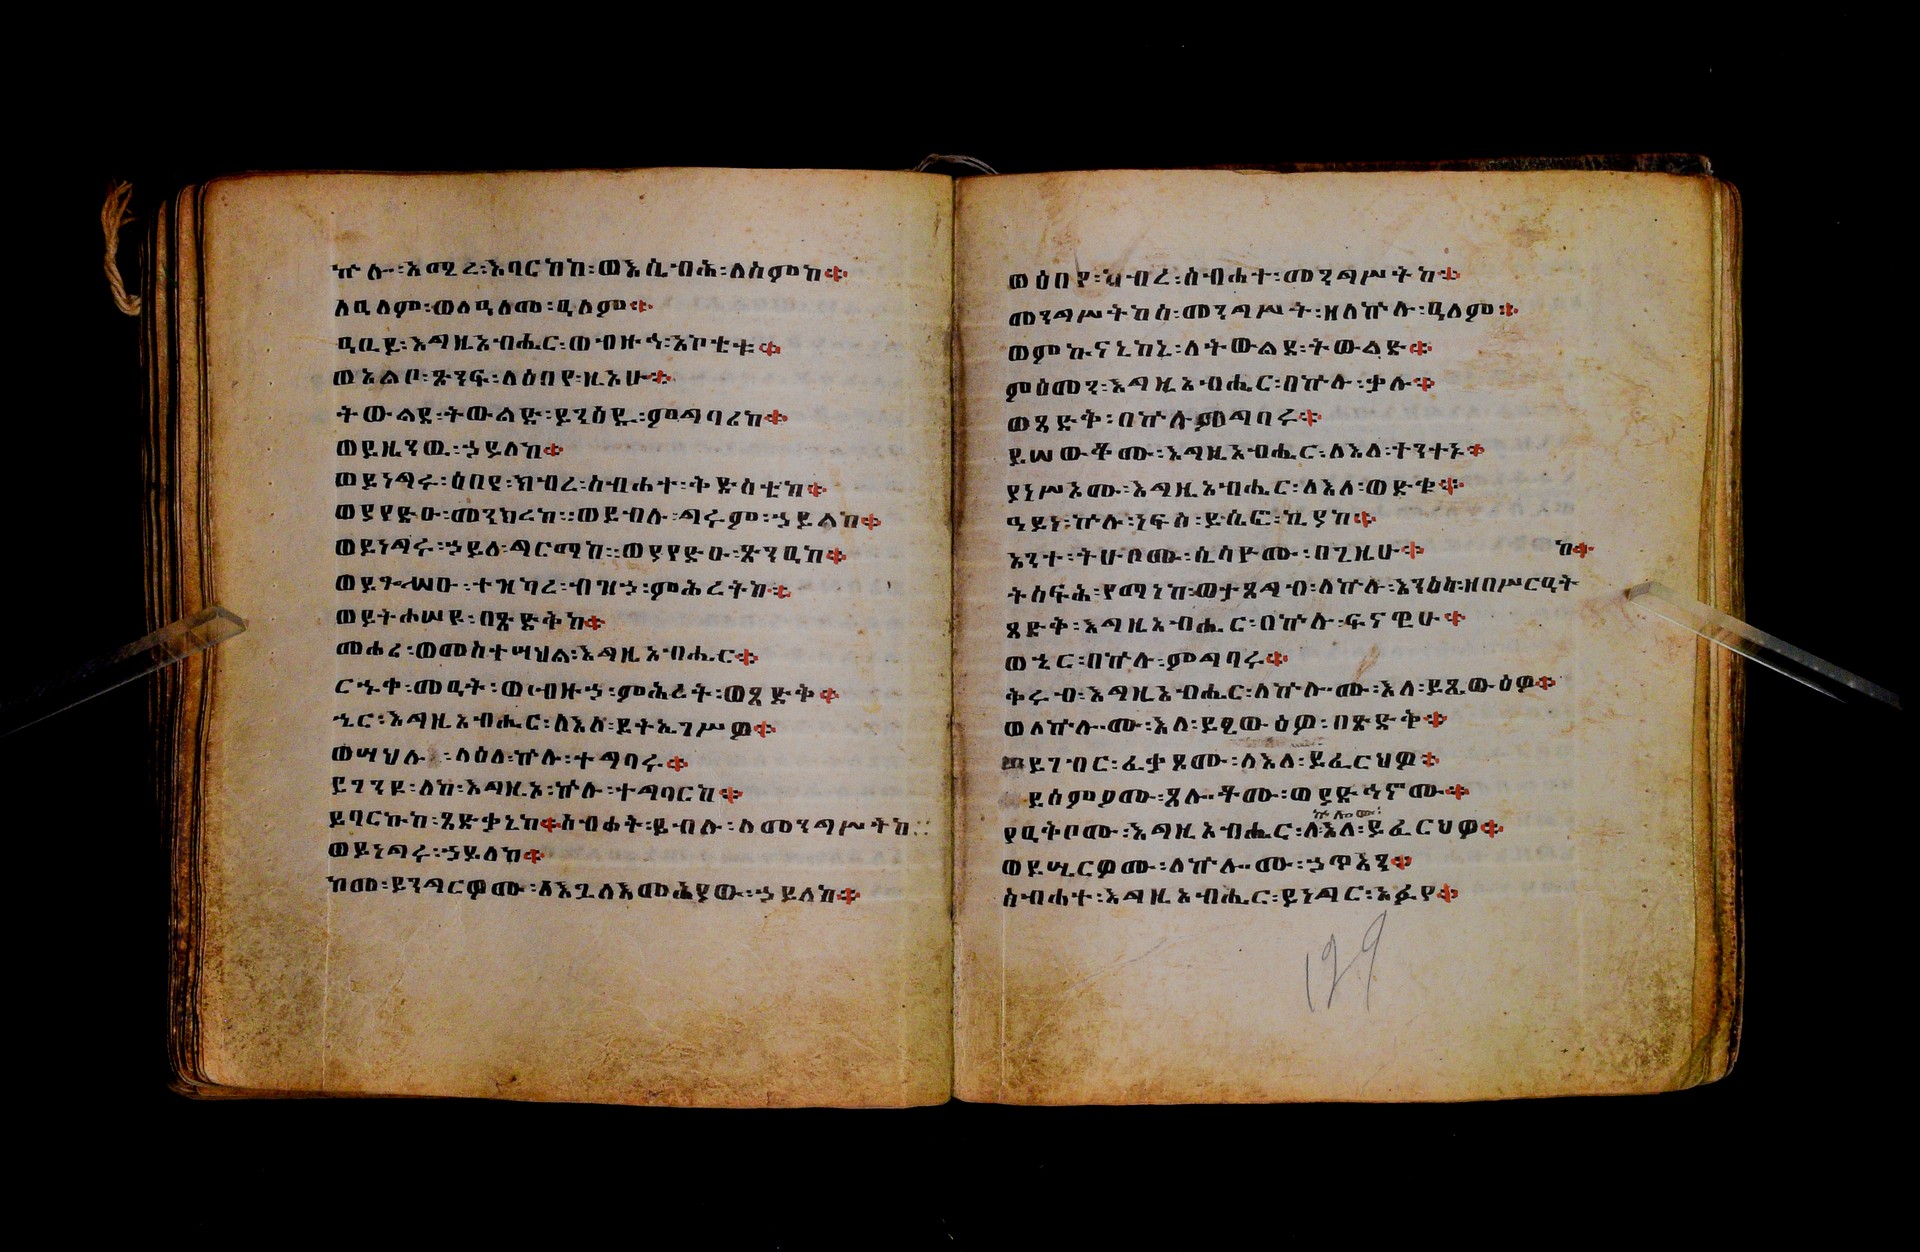 ኵሉ፡አሚረ፡እባርከከ፡ወእሴብሕ፡ለስምከ፨
ለዓለም፡ወለዓለመ፡ዓለም፨
ዓቢይ፡እግዚአብሔር፡ወብዙኅ፡አኰቴቱ፨
ወአልቦ፡ጽንፍ፡ለዕበየ፡ዚአሁ፨
ትውልደ፡ትውልድ፡ይንዕዱ፡ምግባረከ፨
ወይዜንዉ፡ኃይለከ፨
ወይነግሩ፡ዕበየ፡ክብረ፡ስብሐተ፡ቅድስቴከ፨
ወያየድዑ፡መንክረከ፡፡ወይብሉ፡ግሩም፡ኃይልከ፨
ወይነግሩ፡ኃይለ፡ግርማከ፡፡ወያየድዑ፡ጽንዓከ፨
ወይጐሥዑ፡ተዝካረ፡ብዝኃ፡ምሕረትከ፨
ወይትሐሠዩ፡በጽድቅከ፨
መሐሪ፡ወመስተሣህል፡እግዚአብሔር፨
ርኁቀ፡መዓት፡ወብዙኃ፡ምሕረት፡ወጻድቅ፨
ኄር፡እግዚአብሔር፡ለእለ፡ይትኤገሥዎ፨
ወሣህሉ፡ላዕለ፡ኵሉ፡ተግባሩ፨
ይገንዩ፡ለከ፡እግዚኦ፡ኵሉ፡ተግባርከ፨
ይባርኩከ፡ጻድቃኒከ፨ስብሐት፡ይብሉ፡ለመንግሥትከ፡፡
ወይነግሩ፡ኃይለከ፨
ከመ፡ይንግርዎሙ፡ለእጓለእመሕያው፡ኃይለከ፨
ወዕበየ፡ክብረ፡ስብሐተ፡መንግሥትከ፨
መንግሥትከሰ፡መንግሥት፡ዘለኵሉ፡ዓለም፨
ወምኩናኒከኒ፡ለትውልደ፡ትውልድ፨
ምዕመን፡እግዚአብሔር፡በኵሉ፡ቃሉ፨
ወጻድቅ፡በኵሉ፡ምግባሩ፨
ያሠውቆሙ፡እግዚአብሔር፡ለእለ፡ተንተኑ፨
ያነሥኦሙ፡እግዚአብሔር፡ለእለ፡ወድቁ፨
ዓይነ፡ኵሉ፡ነፍስ፡ይሴፎ፡ኪያከ፨
አንተ፡ትሁቦሙ፡ሲሳዮሙ፡በጊዜሁ፨
ከ፨
ትሰፍሕ፡የማነከ፡ወታጸግብ፡ለኵሉ፡እንስሳ፡ዘበሥርዓት
ጻድቅ፡እግዚአብሔር፡በኵሉ፡ፍናዊሁ፨
ወኄር፡በኵሉ፡ምግባሩ፨
ቅሩብ፡እግዚአብሔር፡ለኵሎሙ፡እለ፡ይጼውዕዎ፨
ወለኵሎሙ፡እለ፡ይጼውዕዎ፡በጽድቅ፨
ይገብር፡ፈቃዶሙ፡ለእለ፡ይፈርህዎ፨
ይሰምዖሙ፡ጸሎቶሙ፡ወያድኅኖሙ፨
ኵሎሙ፡
የዓቅቦሙ፡እግዚአብሔር፡ለእለ፡ይፈርህዎ፨
ወይሤርዎሙ፡ለኵሎሙ፡ኃጥአን፨
ስብሐተ፡እግዚአብሔር፡ይነግር፡አፉየ፨
129